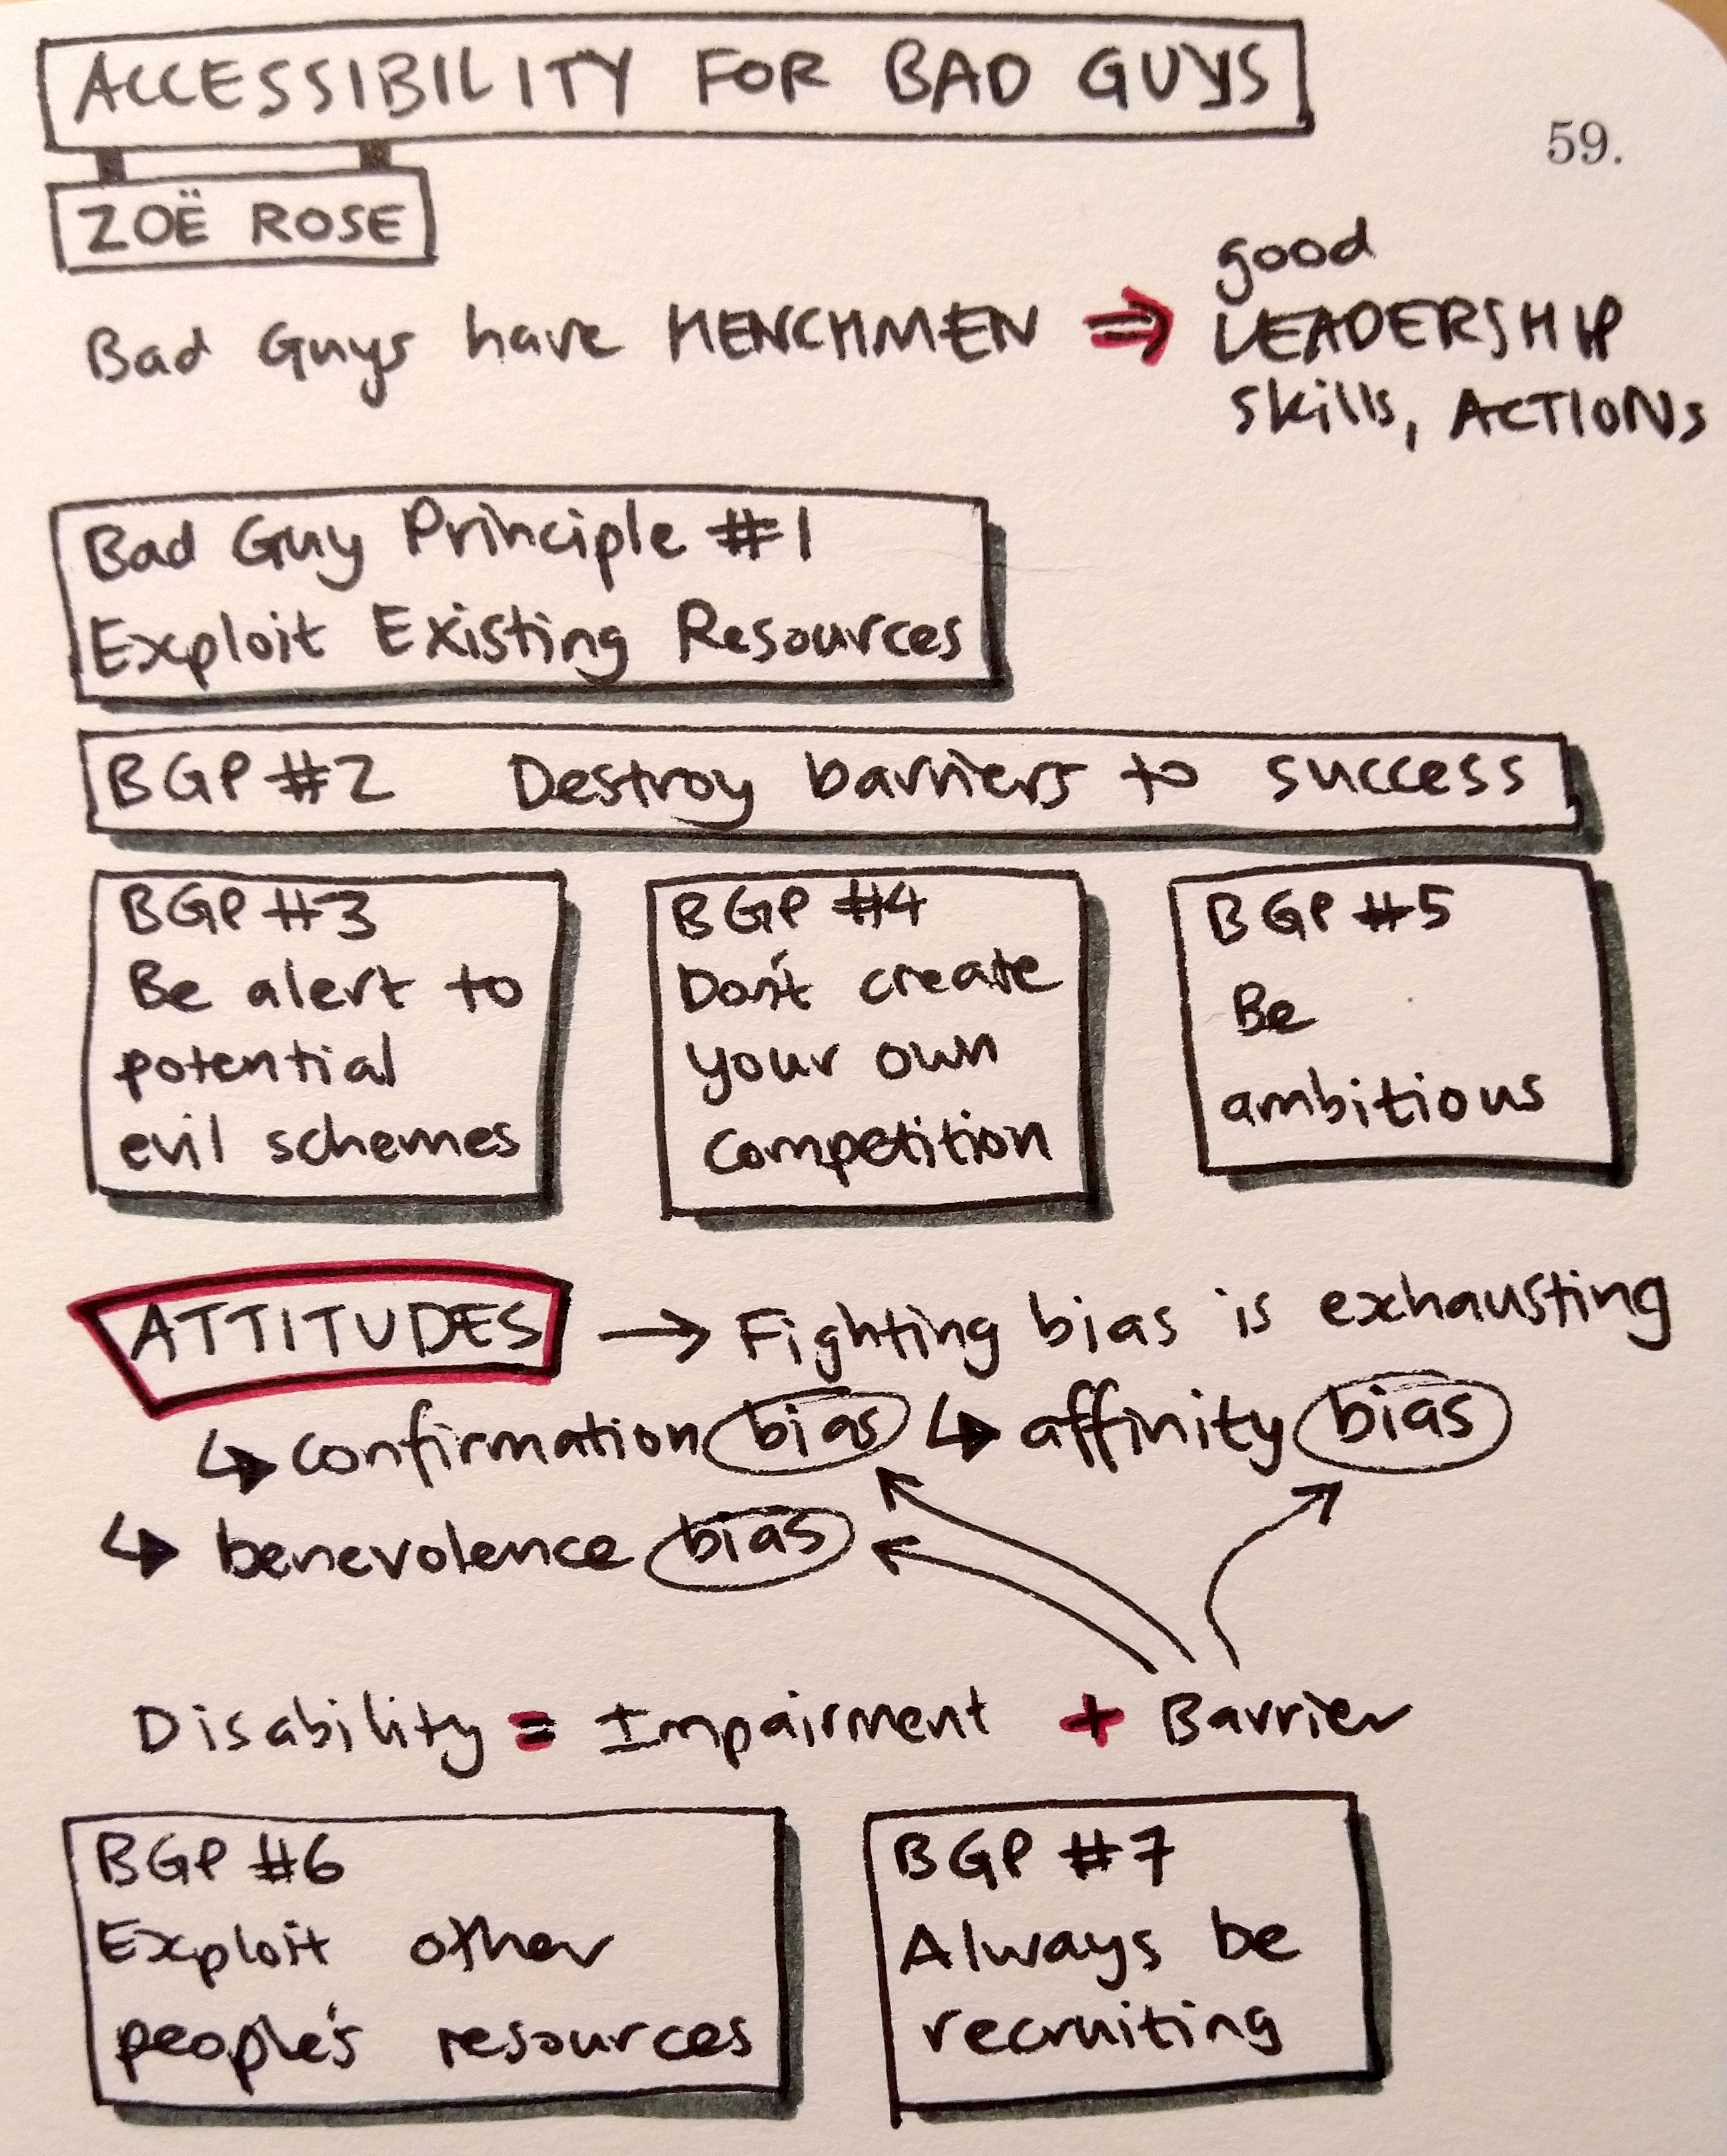 ACCESSIBILITY FOR BAD GUYS
59.
ZOË ROSE
Bad Guys have HENCHMEN ⇒ good
LEADERSHIP
skills, ACTIONS
Bad Guy Principle #1
Exploit Existing Resources
BGP #2 Destroy barriers to success
BGP #3
Be alert to
potential
evil schemes
BGP #4
Don't create
your own
competition
BGP #5
Be
ambitious
ATTITUDES → Fighting bias is exhausting
↳ confirmation bias ↳ affinity bias
↳ benevolence bias
Disability = Impairment + Barrier
BGP #6
Exploit other
people's resources
BGP #7
Always be
recruiting